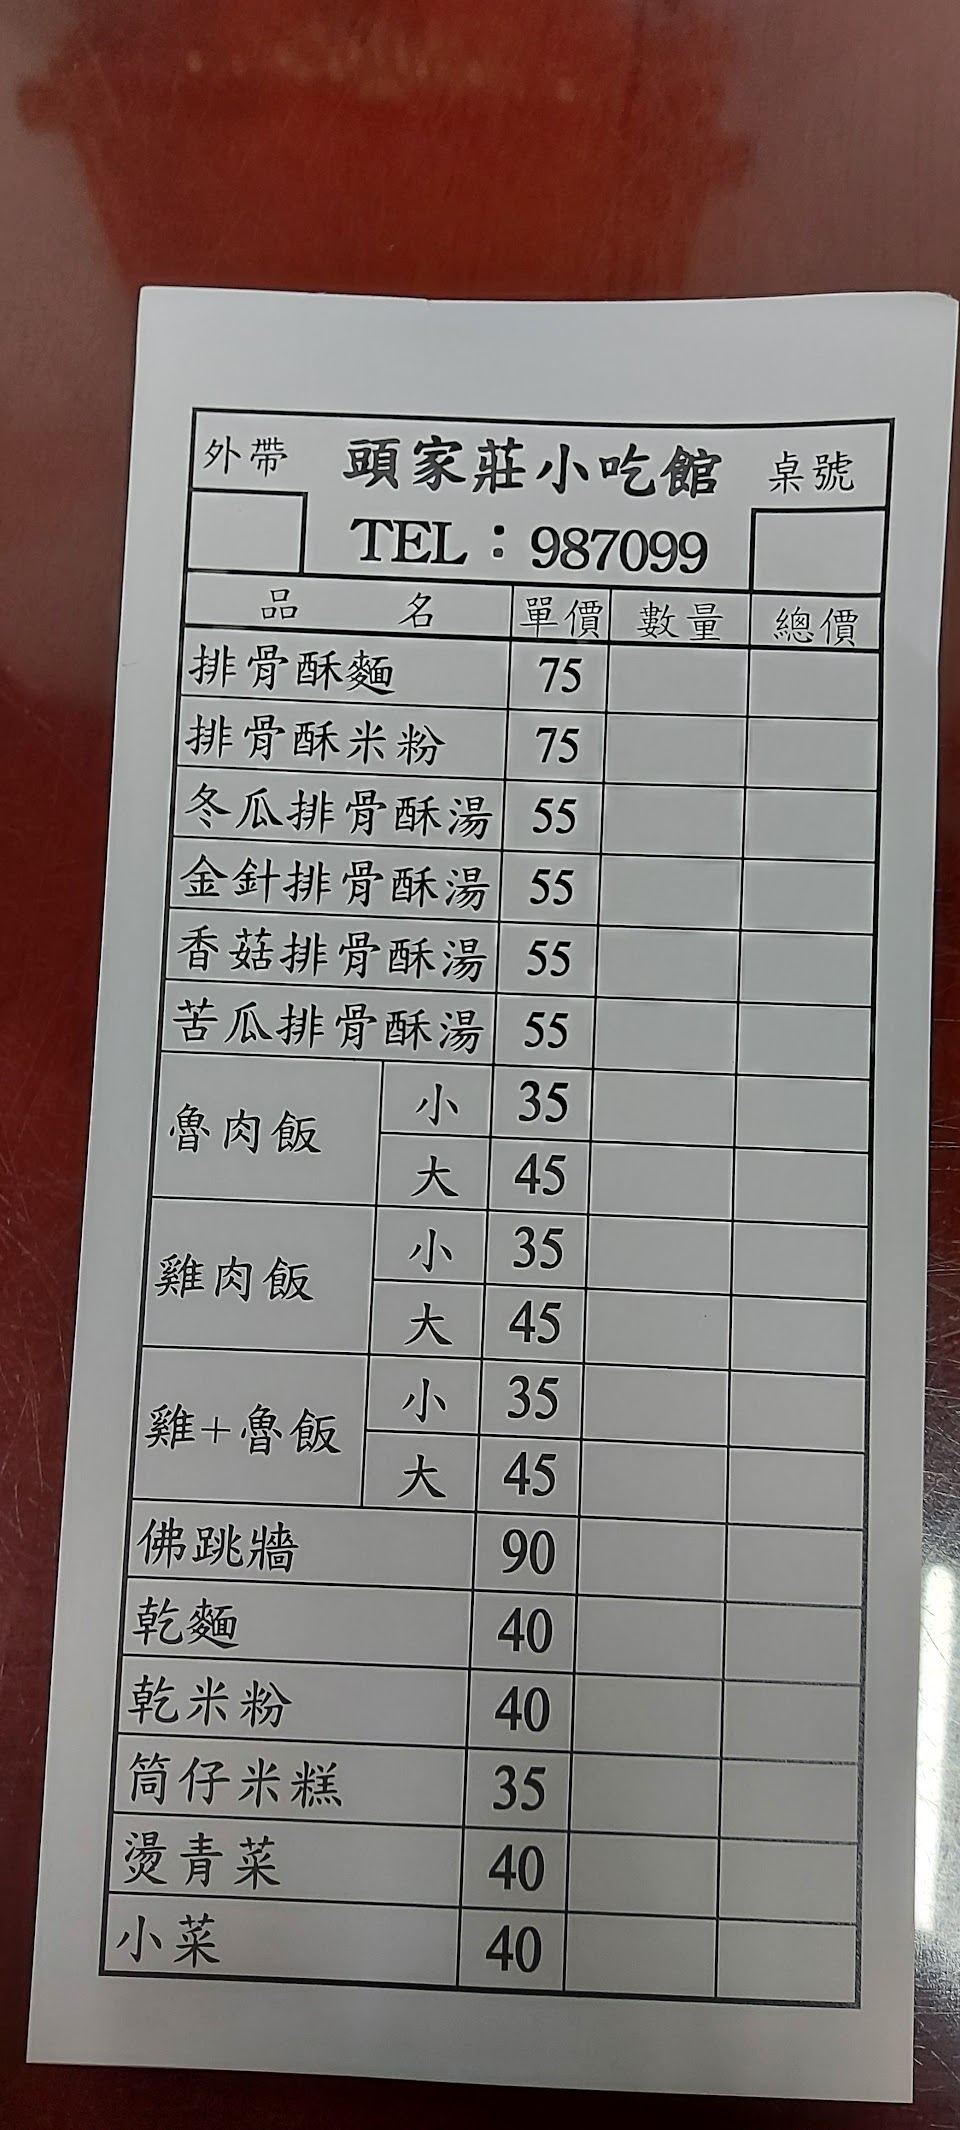 外帶 頭家莊小吃館 桌號
TEL：987099
品名 單價 數量 總價
排骨酥麵 75
排骨酥米粉 75
冬瓜排骨酥湯 55
金針排骨酥湯 55
香菇排骨酥湯 55
苦瓜排骨酥湯 55
魯肉飯 小 35
大 45
雞肉飯 小 35
大 45
雞+魯飯 小 35
大 45
佛跳牆 90
乾麵 40
乾米粉 40
筒仔米糕 35
燙青菜 40
小菜 40